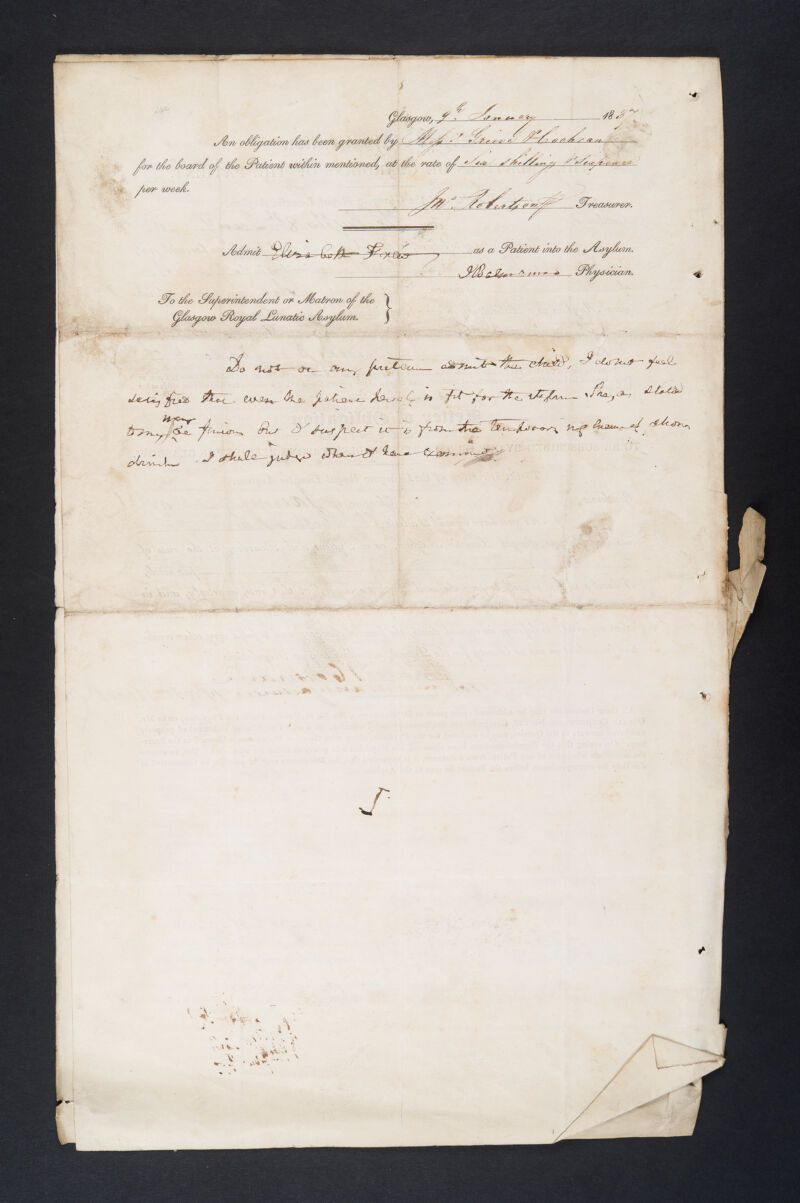 Glasgow, 9th January 1837
An obligation has been granted by Messrs Grieve & Cochran
for the board of the Patient within mentioned, at the rate of Six Shilling & Sixpence
per week.
Jno Robertson Treasurer.
Admit Elizabeth as a Patient into the Asylum.
Physician.
To the Superintendent or Matron of the
Glasgow Royal Lunatic Asylum.
Do not on any pretence admit the child, I do not feel
satisfied that even the patient herself is fit for the Asylum. She, as stated
to me, may be furious but I suspect it is from the temporary influence of strong
drink I shall judge when I have examined